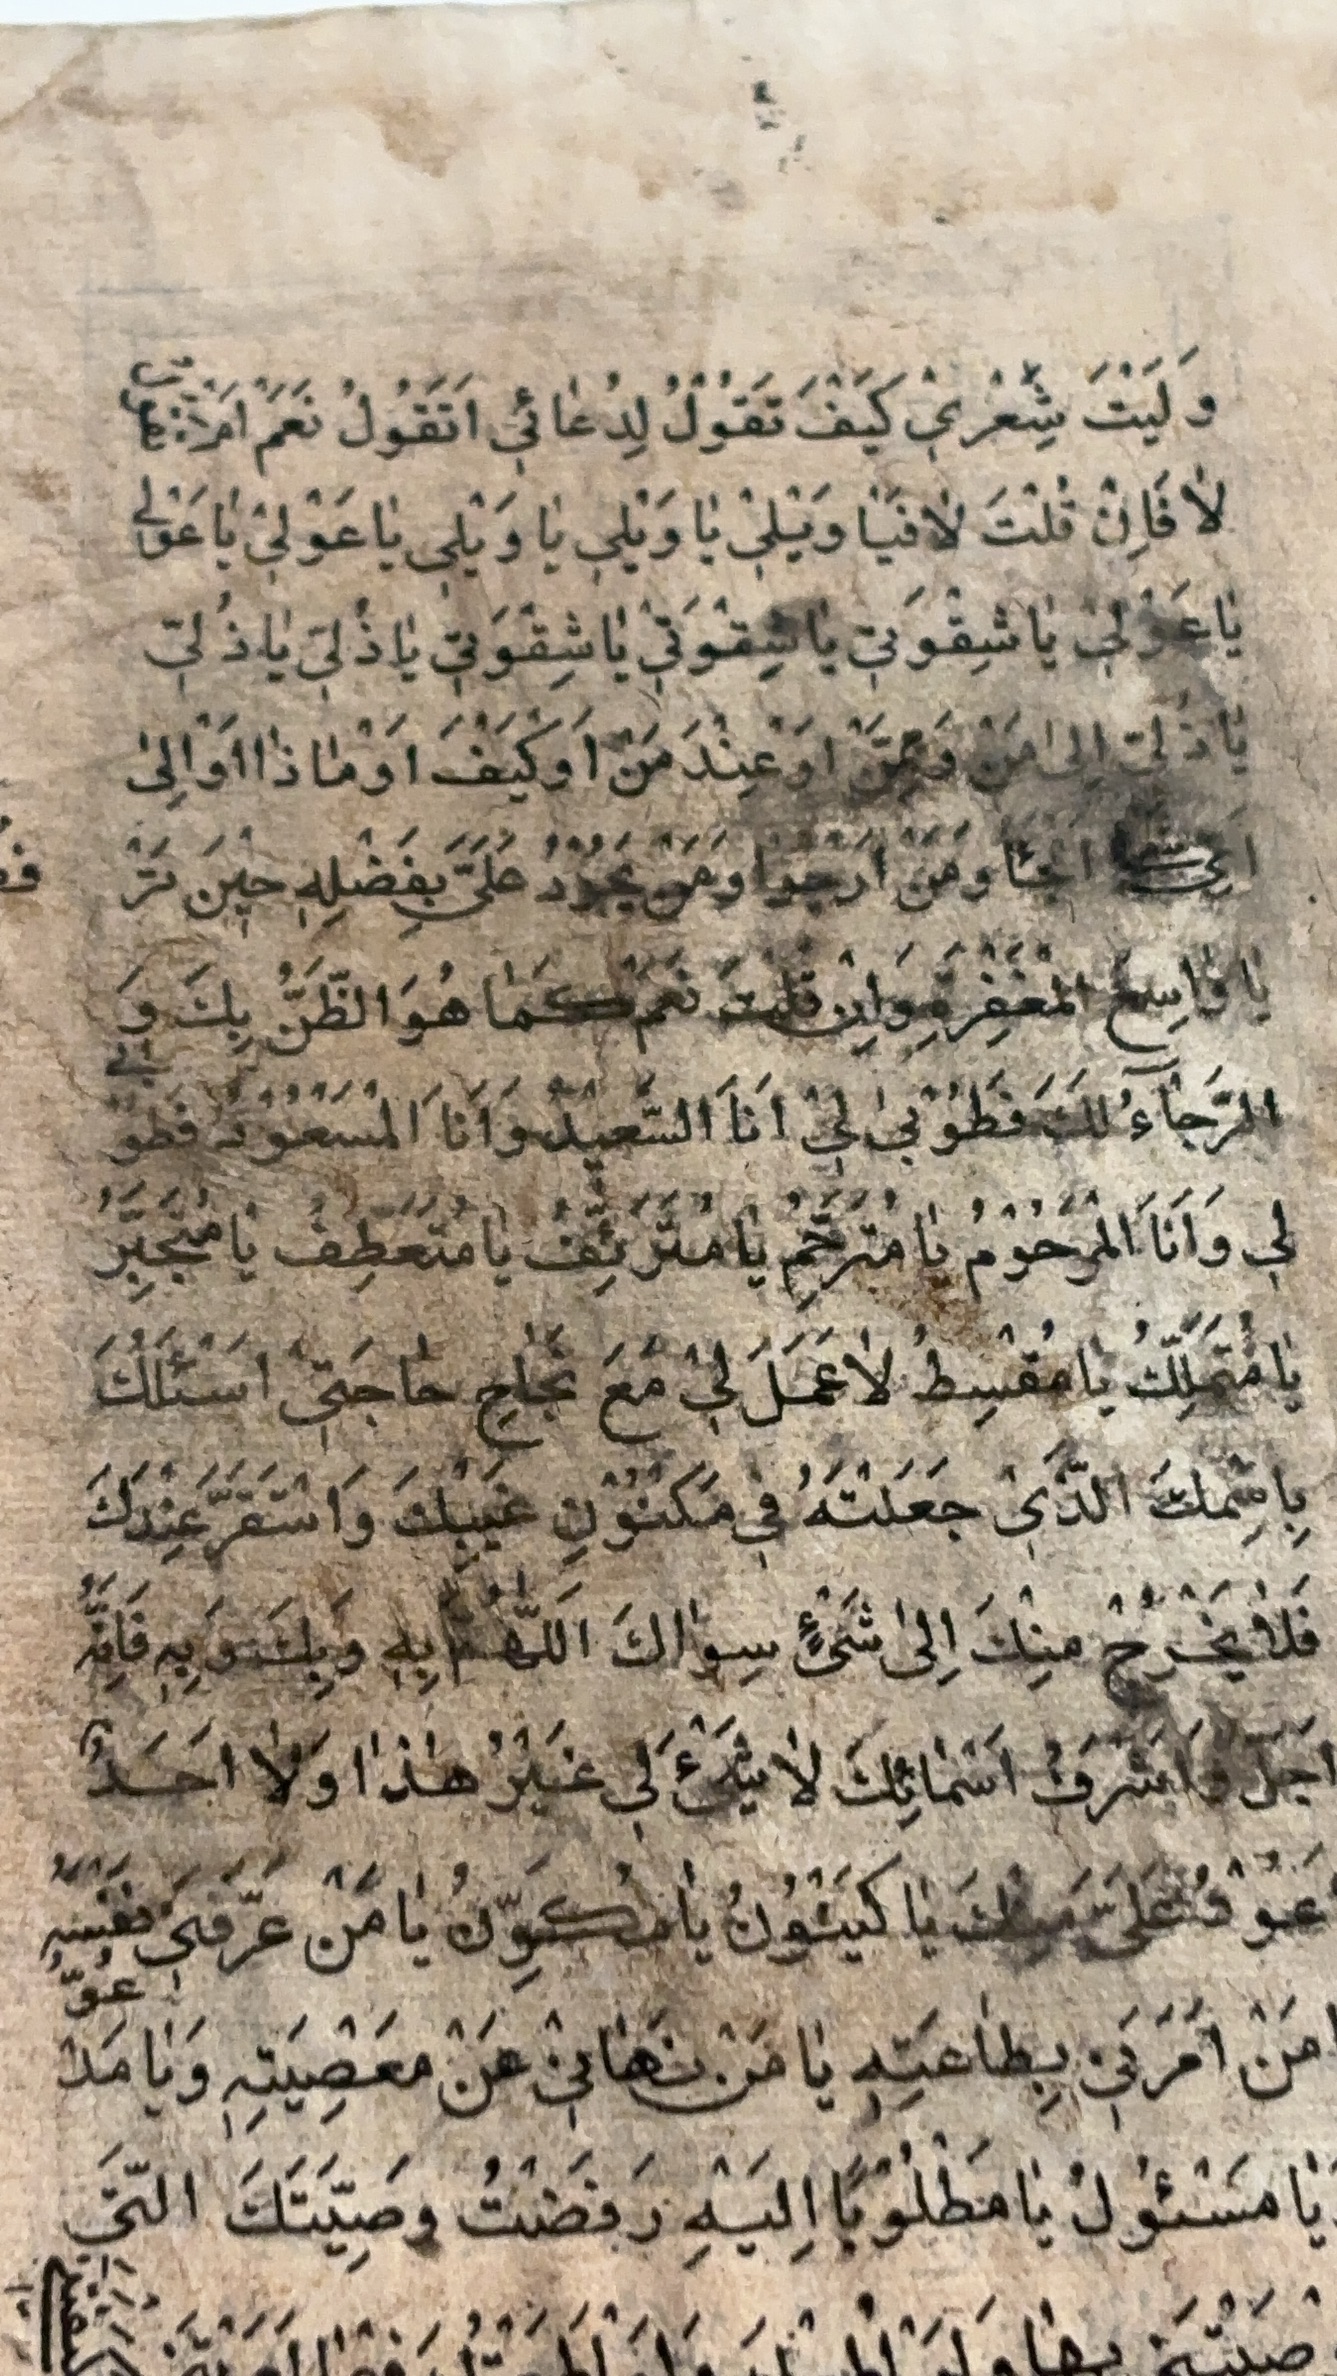 وَلَيْتَ شِعْرِيْ كَيْفَ تَقُوْلُ لِدُعَائِيْ اَتَقُوْلُ نَعَمْ اَمْ
لَا فَاِنْ قُلْتَ لَا فَيَا وَيْلِيْ يَا وَيْلِيْ يَا وَيْلِيْ يَا عَوْلِيْ يَا عَوْلِيْ
يَا عَوْلِيْ يَا شِقْوَتِيْ يَا شِقْوَتِيْ يَا شِقْوَتِيْ يَا ذُلِّيْ يَا ذُلِّيْ
يَا ذُلِّيْ اِلىٰ مَنْ وَمِمَّنْ اَوْ عِنْدَ مَنْ اَوْ كَيْفَ اَوْ مَاذَا اَوْ اِلىٰ
اَيِّ وَمَنْ اَرْجُوْا وَمَنْ يَجُوْدُ عَلَيَّ بِفَضْلِهِ حِيْنَ
يَا وَاسِعَ الْمَغْفِرَةِ وَاِنْ قُلْتَ نَعَمْ كَمَا هُوَ الظَّنُّ بِكَ وَ
الرَّجَاءُ لَكَ فَطُوْبىٰ لِيْ اَنَا السَّعِيْدُ وَاَنَا الْمَسْعُوْدُ فَطُوْبىٰ
لِيْ وَاَنَا الْمَرْحُوْمُ يَا مُتَرَحِّمُ يَا مُتَرَئِّفُ يَا مُتَعَطِّفُ يَا مُتَجَبِّرُ
يَا مُتَمَلِّكُ يَا مُقْسِطُ لَا عَمَلَ لِيْ مَعَ نَجَاحِ حَاجَتِيْ اَسْئَلُكَ
بِاسْمِكَ الَّذِيْ جَعَلْتَهُ فِيْ مَكْنُوْنِ غَيْبِكَ وَاسْتَقَرَّ عِنْدَكَ
فَلَا يَخْرُجُ مِنْكَ اِلىٰ شَيْءٍ سِوَاكَ اَللّٰهُمَّ بِهِ وَبِكَ وَبِهِ فَاِنَّهُ
اَجَلُّ وَاَشْرَفُ اَسْمَائِكَ لَا شَيْءَ لِيْ غَيْرُ هٰذَا وَلَا اَحَدُ
عَلَيَّ مِنْكَ يَا كَيْنُوْنُ يَا مُكَوِّنُ يَا مَنْ عَرَّفَنِيْ نَفْسَهُ
مَنْ اَمَرَنِيْ بِطَاعَتِهِ يَا مَنْ نَهَانِيْ عَنْ مَعْصِيَتِهِ وَيَا مَدْ
عُوُّ
يَا مَسْئُوْلُ يَا مَطْلُوْبًا اِلَيْهِ رَفَضْتُ وَصِيَّتَكَ الَّتِيْ